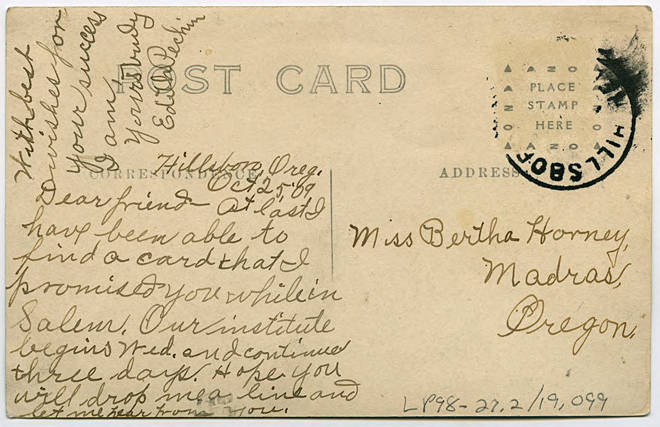 POST CARD
PLACE
STAMP
HERE
HILLSBO
CORRESPONDENCE
ADDRESS
Hillsboro, Oreg.
Oct. 25, '09
Dear friend- At last I
have been able to
find a card that I
promised you while in
Salem. Our institute
begins Wed. and continues
three days. Hope you
will drop me a line and
let me hear from you.
With best
wishes for
your success
I am
Yours truly
Edith Pechin
Miss Bertha Horney,
Madras,
Oregon.
LP98-27.2/19,099